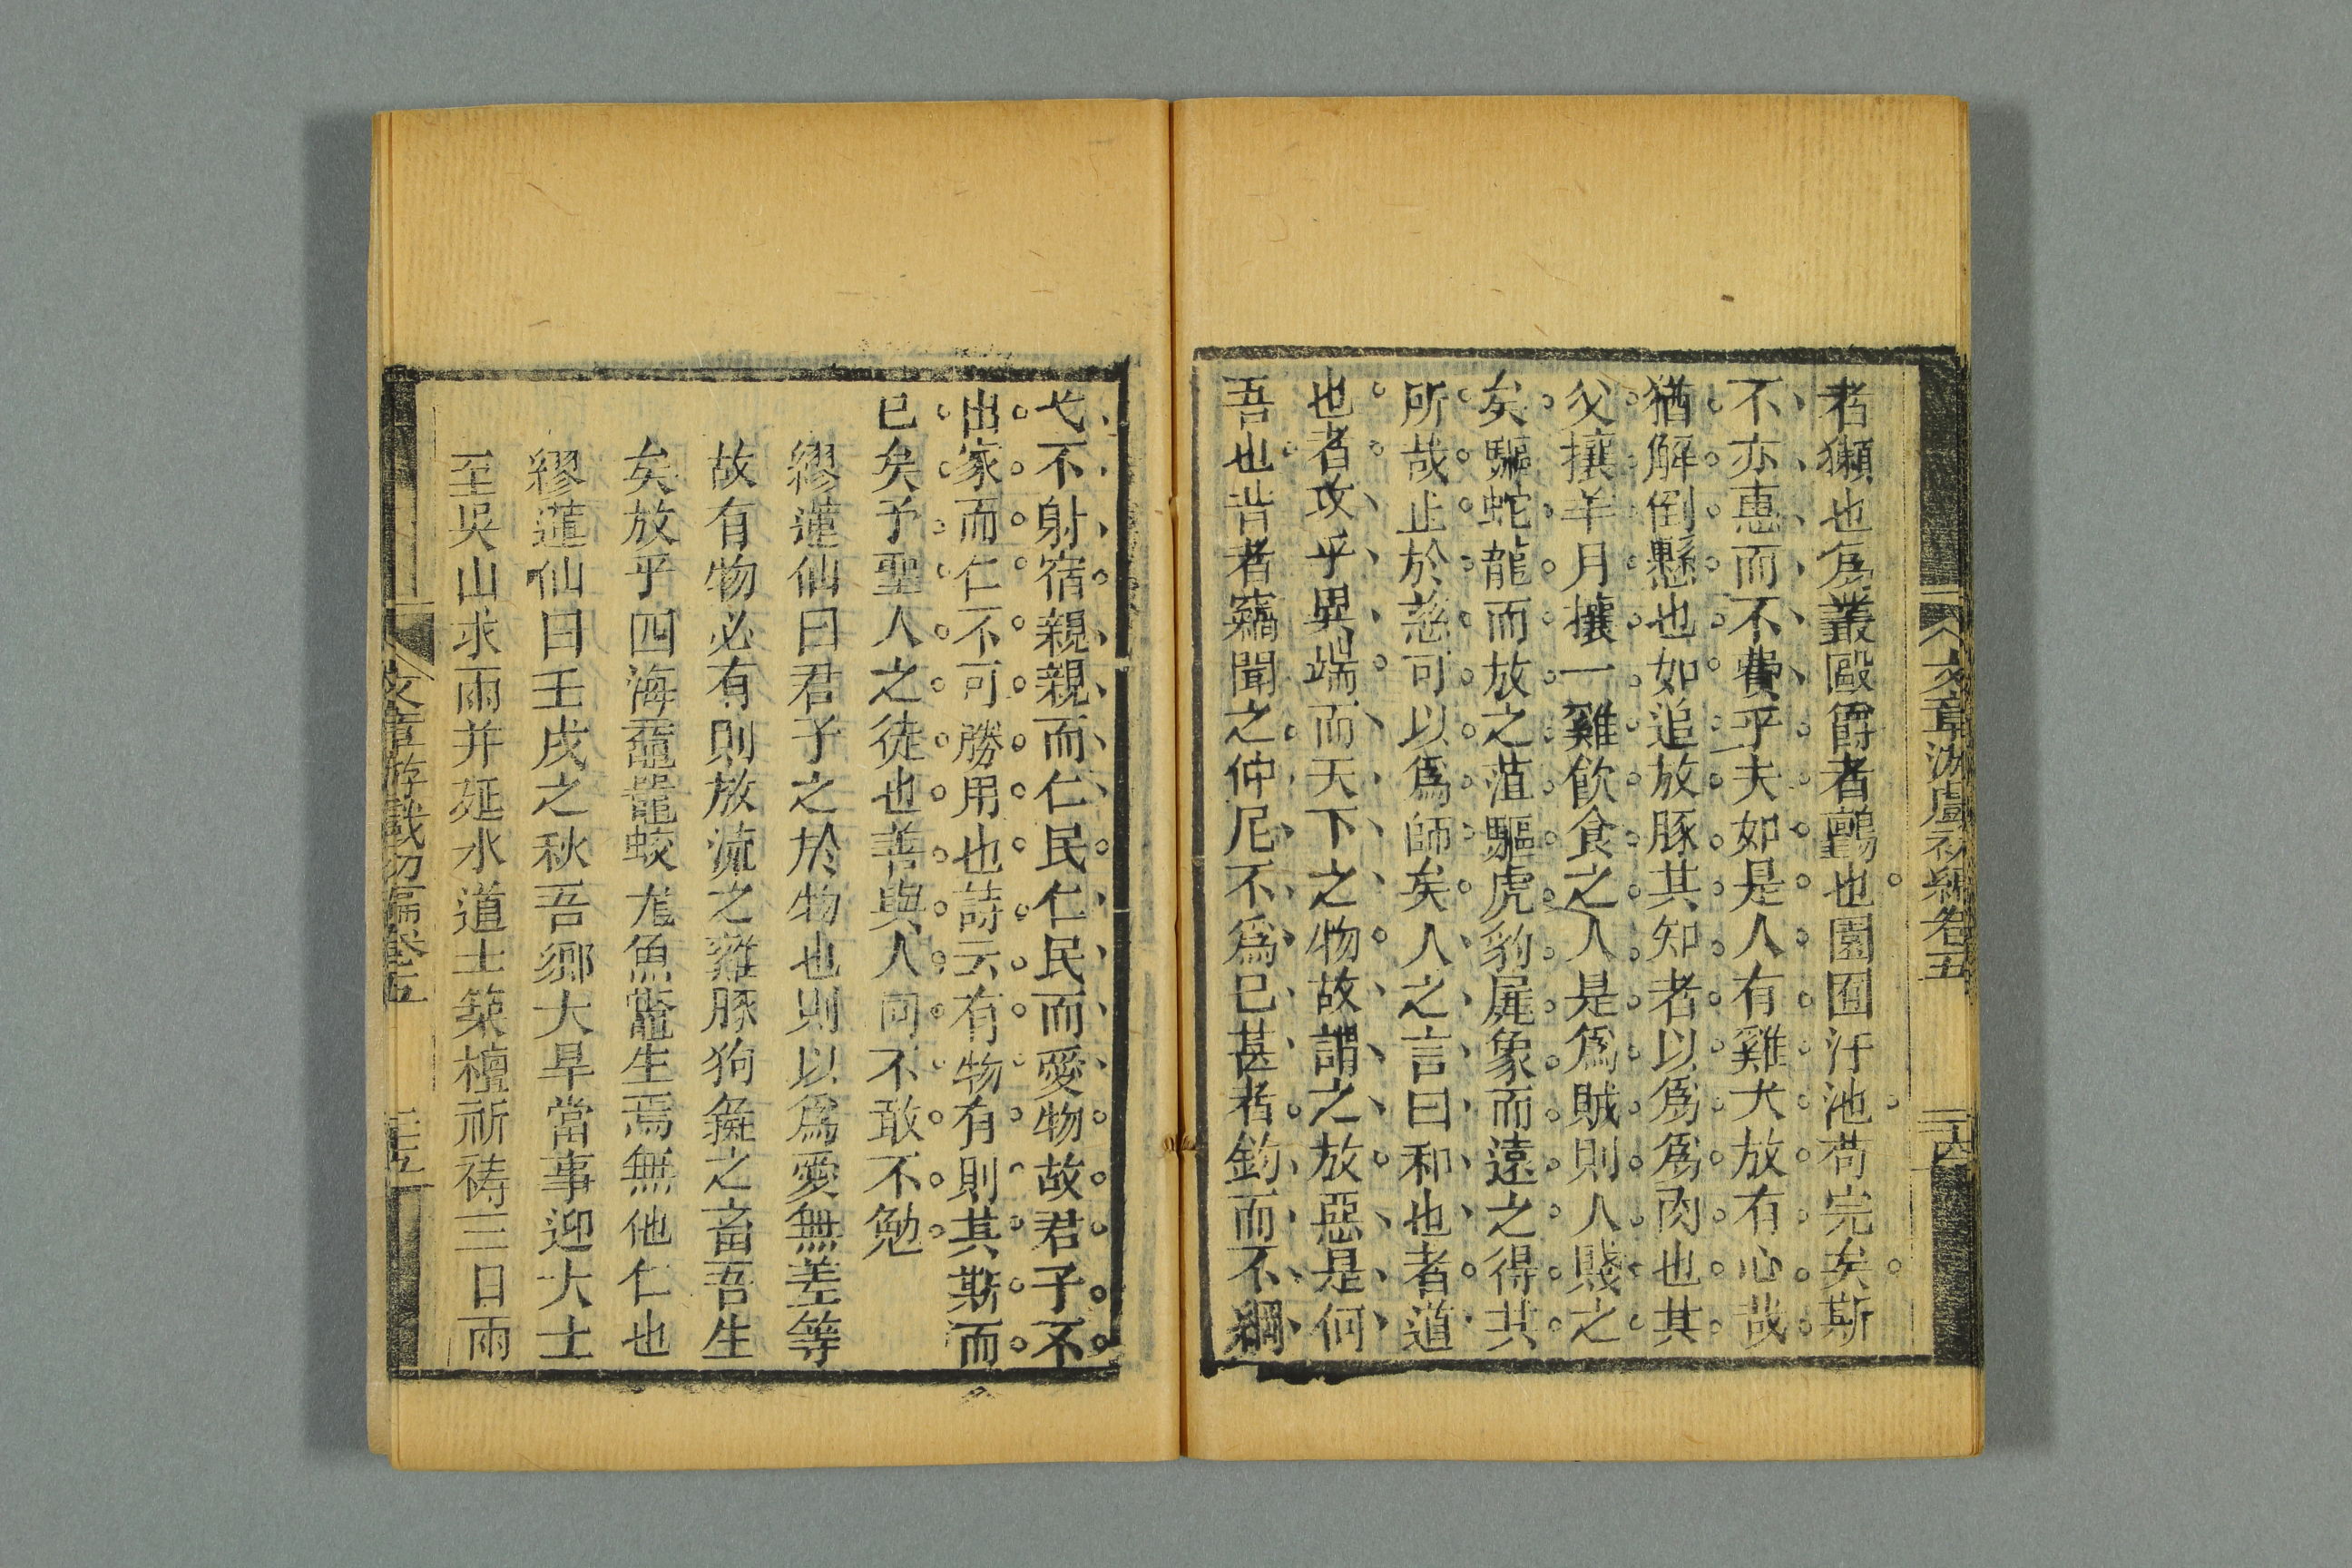 者獺也爲叢毆爵者鸇也園囿汙池苟完矣斯
不亦惠而不費乎夫如是人有雞犬放有心哉
猶解倒懸也如追放豚其知者以爲爲肉也其
父攘羊月攘一雞飲食之人是爲賊則人賤之
矣驅蛇龍而放之菹驅虎豹屏象而遠之得其
所哉止於慈可以爲師矣人之言曰和也者道
也者攻乎異端而天下之物故謂之放惡是何
吾也昔者竊聞之仲尼不爲已甚者釣而不綱
弋不射宿親親而仁民仁民而愛物故君子不
出家而仁不可勝用也詩云有物有則其斯而
已矣予聖人之徒也善與人同不敢不勉
繆蓮仙曰君子之於物也則以爲愛無差等
故有物必有則放流之雞豚狗彘之畜吾生
矣放乎四海黿鼉蛟龙魚鼈生焉無他仁也
繆蓮仙曰壬戌之秋吾鄉大旱當事迎大士
至吳山求雨并延水道士築檀祈祷三日雨
文章游戲初編卷五
二十六
文章游戲初編卷五